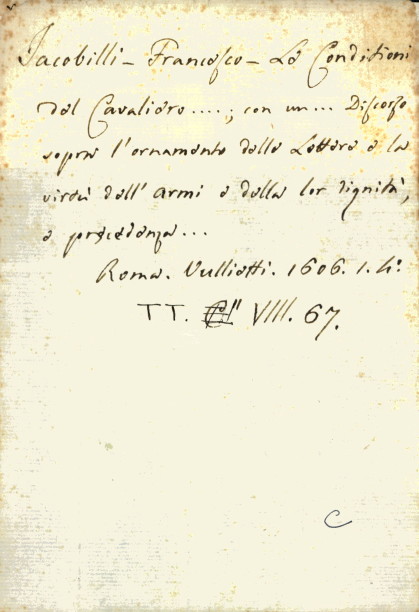 Jacobilli - Francesco - Le Conditioni
del Cavaliere ....; con un ... Discorso
sopra l'ornamento delle Lettere e la
virtù dell' armi e della lor dignità,
e precedenza ...
Roma. Vulliotti. 1606. 1. 4:º
TT. VIII. 67.
C